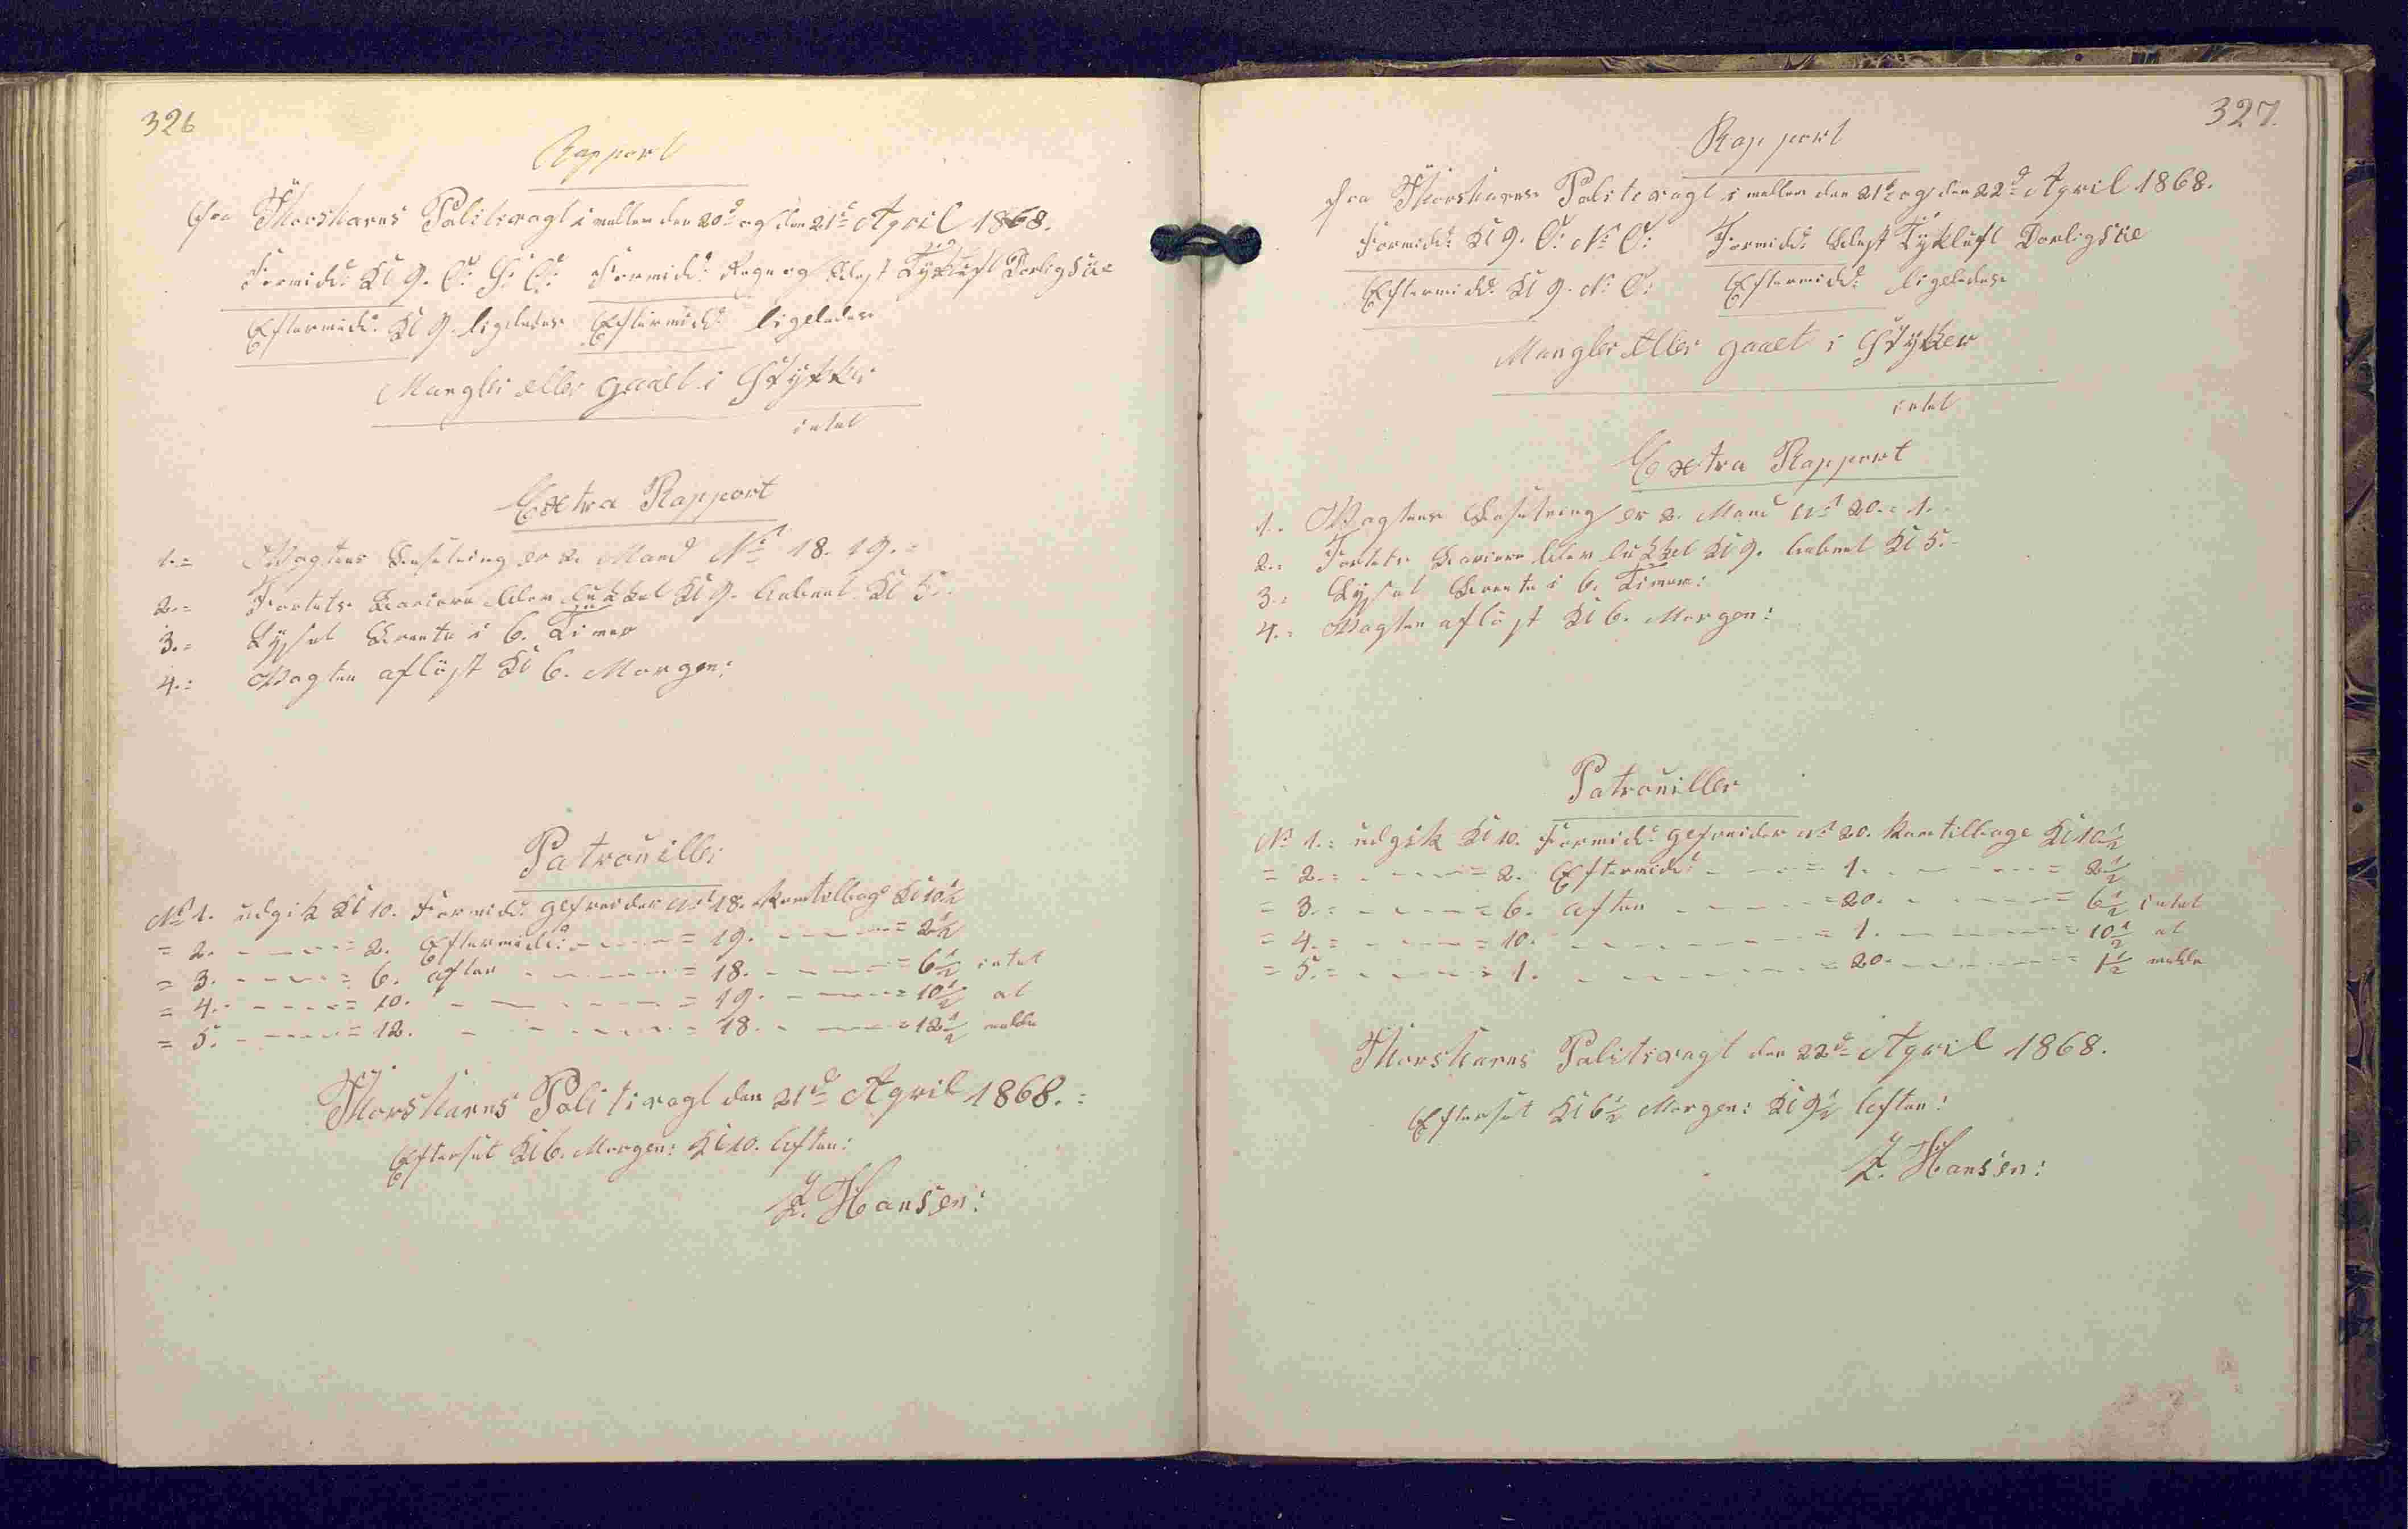 326
Rapport
fra Thorshavns Politivagt i mellem den 20d og den 21d April 1868.
Formidd: Kl 9. O: S: O: Formidd: Regn og Blæst Tÿkluft Dorligsüe
Eftermidd: Kl 9. ligeledes Eftermidd: ligeledes
Mangler eller gaaet i Stÿkker
intet
Extra Rapport
1.= Vagtens Besætning er 2. Mand No 18. 19.=
2.= Fortets Bariere blev lukket Kl 9. aabnet Kl 5.
3.= Lÿset brente i 6. Timer
4.= Vagten aflöst Kl 6. Morgen:
Patrouiller
No 1. udgik Kl 10. Formidd: gefreider No 18. kom tilbage Kl 10 1/2
= 2. - - - = 2. Eftermidd: - - - = 19. - - - = 2 1/2
= 3. - - - = 6. aften - - - = 18. - - - = 6 1/2 intet
= 4. - - - = 10. - - - = 19. - - - = 10 1/2 at
= 5. - - - = 12. - - - = 18. - - - = 12 1/2 melde
Thorshavns Politivagt den 21d April 1868.=
Efterset Kl 6. Morgen: Kl 10. Aften:
Z. Hansen:
327.
Rapport
fra Thorshavns Politivagt i mellem den 21d og den 22d April 1868.
Formidd: Kl 9. O: N: O: Formidd: Blæst Tÿkluft Dorligsüe
Eftermidd: Kl 9. N: O: Eftermidd: ligeledes
Mangler eller gaaet i Stÿkker
intet
Extra Rapport
1.= Vagtens Besætning er 2. Mand No 20.= 1.
2.= Fortets Bariere blev lukket Kl 9. aabnet Kl 5.=
3.= Lÿset brente i 6. Timer:
4.= Vagten aflöst Kl 6. Morgen:
Patrouiller
No 1.= udgik Kl 10. Formidd: gefreider No 20. kom tilbage Kl 10 1/2
= 2.= - - - = 2. Eftermidd: - - - = 1. - - - = 2 1/2
= 3.= - - - = 6. aften - - - = 20. - - - = 6 1/2 intet
= 4.= - - - = 10. - - - = 1. - - - = 10 1/2 at
= 5.= - - - = 1. - - - = 20. - - - = 1 1/2 melde
Thorshavns Politivagt den 22d April 1868.
Efterset Kl 6 1/2 Morgen: Kl 9 1/2 Aften:
Z. Hansen: